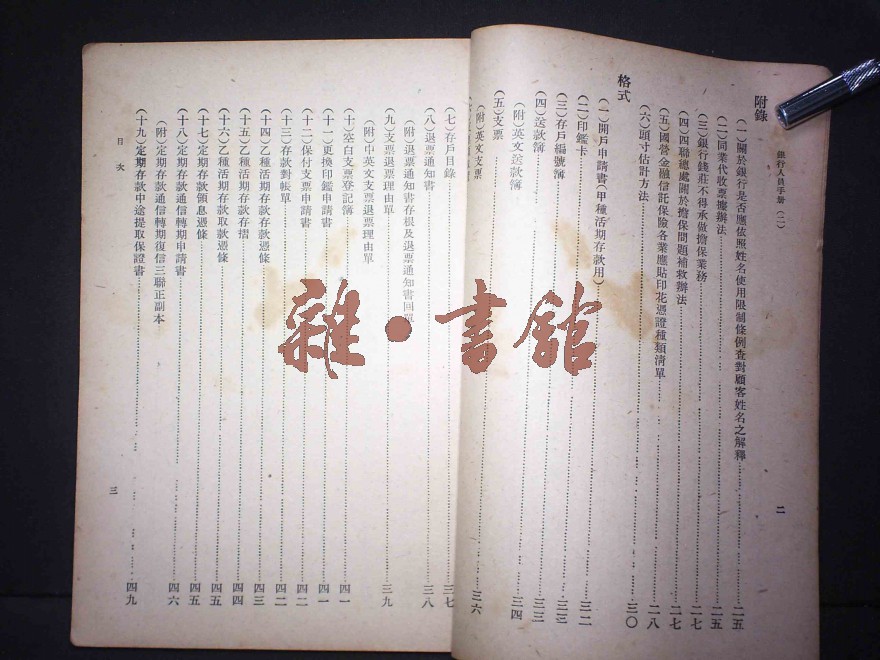 銀行人員手冊（二）
二
附錄
（一）關於銀行是否應依照姓名使用限制條例查對顧客姓名之解釋……二五
（二）同業代收票據辦法……二五
（三）銀行錢莊不得承做擔保業務……二七
（四）四聯總處關於擔保問題補救辦法……二七
（五）國營金融信託保險各業應貼印花憑證種類清單……二八
（六）頭寸估計方法……三〇
格式
（一）開戶申請書（甲種活期存款用）……三二
（二）印鑑卡
（三）存戶編號簿
（四）送款簿……三三
（附）英文送款簿……三四
（五）支票
（附）英文支票……三六
（七）存戶目錄……三七
（八）退票通知書……三八
（附）退票通知書存根及退票通知書回單
（九）支票退票理由單……三九
（附）中英文支票退票理由單
（十）空白支票登記簿……四一
（十一）更換印鑑申請書……四一
（十二）保付支票申請書……四二
（十三）存款對帳單……四二
（十四）乙種活期存款存款憑條……四三
（十五）乙種活期存款存摺……四四
（十六）乙種活期存款取款憑條……四五
（十七）定期存款領息憑條……四五
（十八）定期存款通信轉期申請書……四六
（附）定期存款通信轉期復信三聯正副本
（十九）定期存款中途提取保證書……四九
目次
三
雜·書館